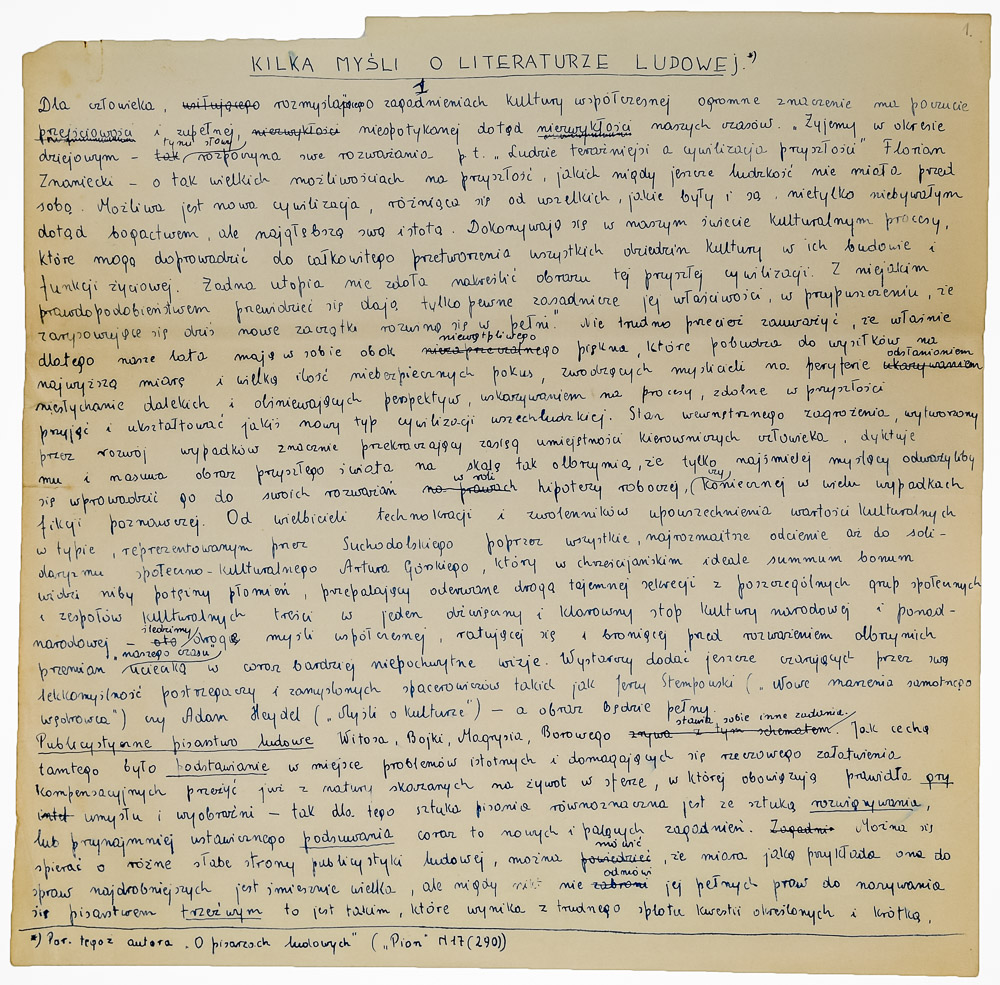 1.
KILKA MYŚLI O LITERATURZE LUDOWEJ.*)
Dla człowieka, usiłującego rozmyślającego zagadnieniach kultury współczesnej ogromne znaczenie ma poczucie
przejściowości i zupełnej, niezwykłości niespotykanej dotąd niezwykłości naszych czasów. „Żyjemy w okresie
tymi słowy
dziejowym – tak rozpoczyna swe rozważania p.t. „Ludzie teraźniejsi a cywilizacja przyszłości" Florian
Znaniecki – o tak wielkich możliwościach na przyszłość, jakich nigdy jeszcze ludzkość nie miała przed
sobą. Możliwa jest nowa cywilizacja, różniąca się od wszelkich, jakie były i są, nietylko niebywałym
dotąd bogactwem, ale najgłębszą swą istotą. Dokonywają się w naszym świecie kulturalnym procesy,
które mogą doprowadzić do całkowitego przetworzenia wszystkich dziedzin kultury w ich budowie i
funkcji życiowej. Żadna utopia nie zdoła nakreślić obrazu tej przyszłej cywilizacji. Z niejakim
prawdopodobieństwem przewidzieć się dają tylko pewne zasadnicze jej właściwości, w przypuszczeniu, że
zarysowujące się dziś nowe zaczątki rozwiną się w pełni." Nie trudno przecież zauważyć, że właśnie
niewątpliwego
dlatego nasze lata mają w sobie obok niezaprzeczalnego piękna, które pobudza do wysiłków na
odsłanianiem
najwyższą miarę i wielką ilość niebezpiecznych pokus, zwodzących myślicieli na peryferie ukazywaniem
niesłychanie dalekich i olśniewających perspektyw, wskazywaniem na procesy, zdolne w przyszłości
przyjąć i ukształtować jakiś nowy typ cywilizacji wszechludzkiej. Stan wewnętrznego zagrożenia, wytworzony
przez rozwój wypadków znacznie przekraczający zasiąg umiejętności kierowniczych człowieka, dyktuje
mu i nasuwa obraz przyszłego świata na skalę tak olbrzymią, że tylko najśmielej myślący odważyliby
w roli czy
się wprowadzić go do swoich rozważań na prawach hipotezy roboczej, koniecznej w wielu wypadkach
fikcji poznawczej. Od wielbicieli technokracji i zwolenników upowszechnienia wartości kulturalnych
w typie, reprezentowanym przez Suchodolskiego poprzez wszystkie, najrozmaitsze odcienie aż do soli-
daryzmu społeczno-kulturalnego Artura Górskiego, który w chrześcijańskim ideale summum bonum
widzi niby potężny płomień, przepalający oderwane drogą tajemnej sekrecji z poszczególnych grup społecznych
i zespołów kulturalnych treści w jeden dźwięczny i klarowny stop kultury narodowej i ponad-
śledzimy
narodowej – oto drogę myśli współczesnej, ratującej się i broniącej przed rozważeniem olbrzymich
„naszego czasu"
przemian ucieczką w coraz bardziej niepochwytne wizje. Wystarczy dodać jeszcze czarujących przez swą
lekkomyślność postrzegaczy i zamyślonych spacerowiczów takich jak Jerzy Stempowski („Nowe marzenia samotnego
wędrowca") czy Adam Heydel („Myśli o kulturze") – a obraz będzie pełny.
stawia sobie inne zadania.
Publicystyczne pisarstwo ludowe Witosa, Bojki, Magrysia, Borowego zrywa z tym schematem. Jak cechą
tamtego było podstawianie w miejsce problemów istotnych i domagających się rzeczowego załatwienia
kompensacyjnych przeżyć już z natury skazanych na żywot w sferze, w której obowiązują prawidła gry
intel umysłu i wyobraźni – tak dla tego sztuka pisania równoznaczna jest ze sztuką rozwiązywania,
lub przynajmniej ustawicznego podsuwania coraz to nowych i palących zagadnień. Zagadni Można się
mówić
spierać o różne słabe strony publicystyki ludowej, można powiedzieć, że miara jaką przykłada ona do
odmówi
spraw najdrobniejszych jest śmiesznie wielka, ale nigdy nikt nie zabroni jej pełnych praw do nazywania
się pisarstwem trzeźwym to jest takim, które wynika z trudnego splotu kwestii określonych i krótką,
*) Por. tegoż autora „O pisarzach ludowych" („Pion" N 17 (290))